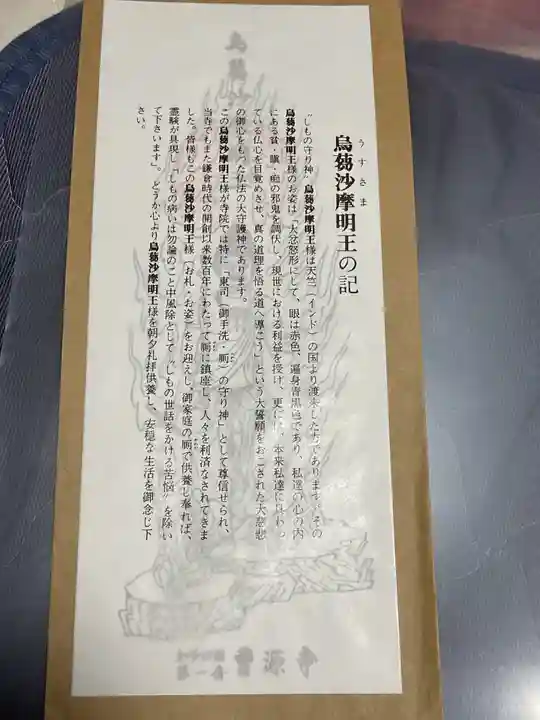 うすさま
烏蒭沙摩明王の記
“しもの守り神”烏蒭沙摩明王様は天竺(インド)の国より渡来した方であります。その
烏蒭沙摩明王様のお姿は「大忿怒形にして、眼は赤色、遍身青黒色であり、私達の心の内
にある貪・瞋・痴の邪鬼を調伏し、現世における利益を授け、更には、本来私達に具わっ
ている仏心を目覚めさせ、真の道理を悟る道へ導こう」という大誓願をおこされた大慈悲
の御心をもった仏法の大守護神であります。
この烏蒭沙摩明王様が寺院では特に「東司(御手洗・厠)の守り神」として尊信せられ、
当寺でもまた鎌倉時代の開創以来数百年にわたって厠に鎮座し、人々を利済なされてきま
した。皆様もこの烏蒭沙摩明王様(お札・お姿)をお迎えし、御家庭の厠で供養し奉れば、
霊験が具現し「しもの病いは勿論のこと中風除として“しもの世話をかける苦悩”を除い
て下さいます」。どうか心より烏蒭沙摩明王様を朝夕礼拝供養し、安穏な生活を御念じ下
さい。